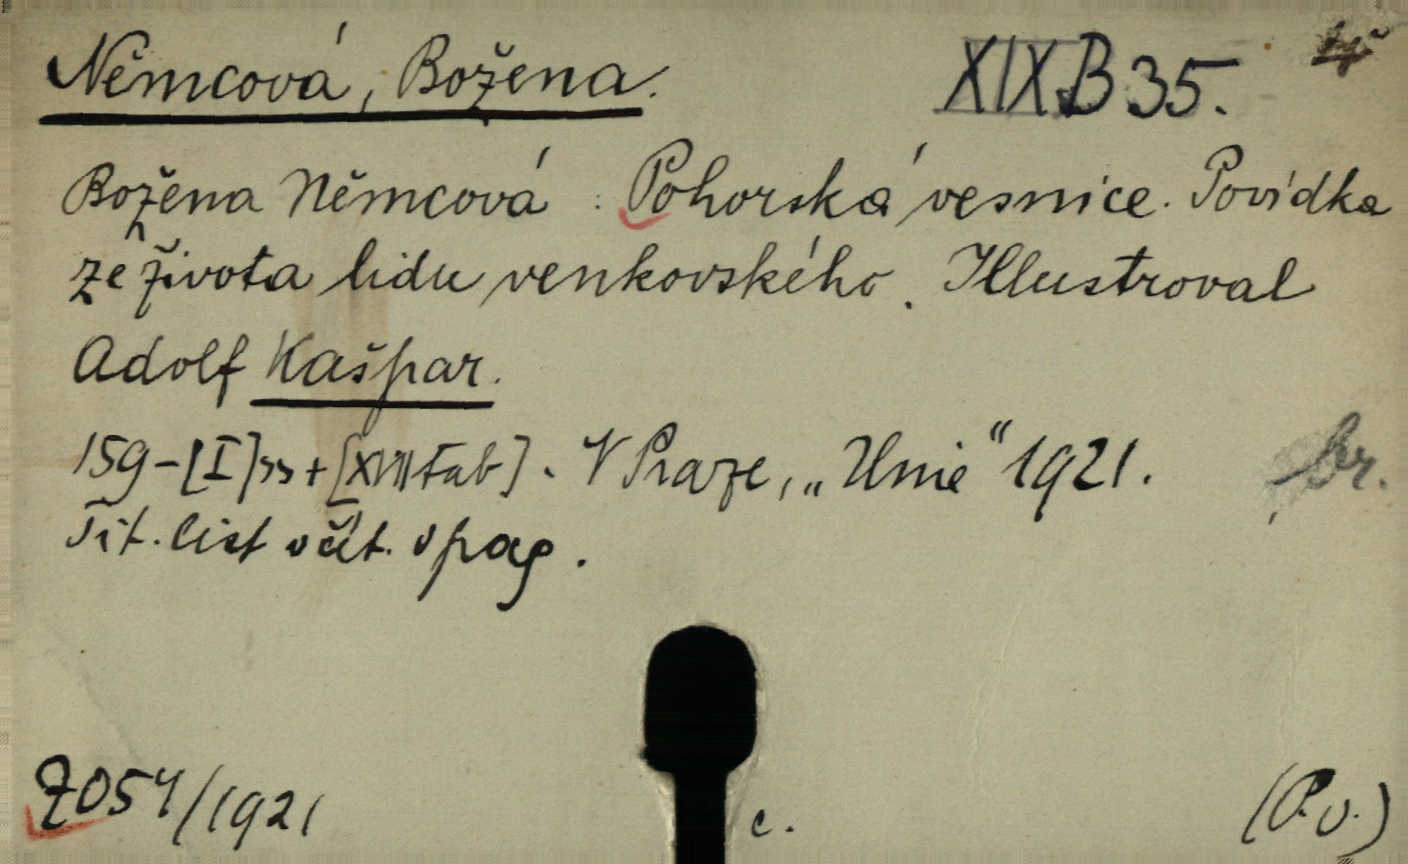 Němcová, Božena. XIX B 35.
Božena Němcová: Pohorská vesnice. Povídka
ze života lidu venkovského. Illustroval
Adolf Kašpar.
159-[I]ss+[XVII tab]. V Praze, „Unie“ 1921. br.
Tit. list včít. v pag.
7054/1921 c. (P.v.)